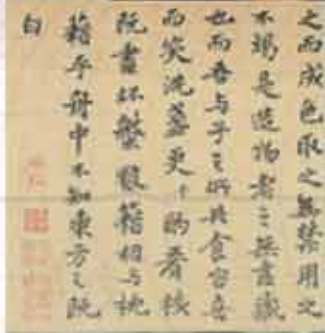 之而成色取之無禁用之
不竭是造物者之無盡藏
也而吾与子之所共食客喜
而笑洗盞更酌肴核
既盡杯盤狼籍相与枕
藉乎舟中不知東方之既
白